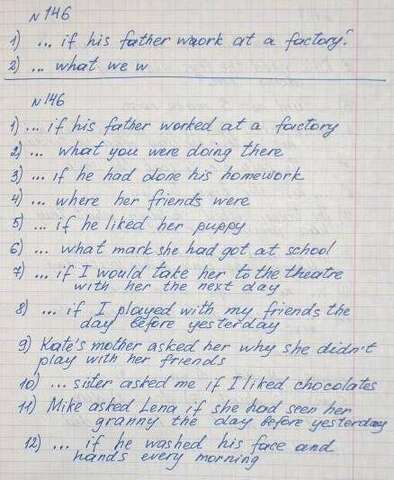 №146
1) ... if his father work at a factory?
2) ... what we w
№146
1) ... if his father worked at a factory
2) ... what you were doing there
3) ... if he had done his homework
4) ... where her friends were
5) ... if he liked her puppy
6) ... what mark she had got at school
7) ... if I would take her to the theatre
with her the next day
8) ... if I played with my friends the
day before yesterday
9) Kate's mother asked her why she didn't
play with her friends
10) ... sister asked me if I liked chocolates
11) Mike asked Lena if she had seen her
granny the day before yesterday
12) ... if he washed his face and
hands every morning